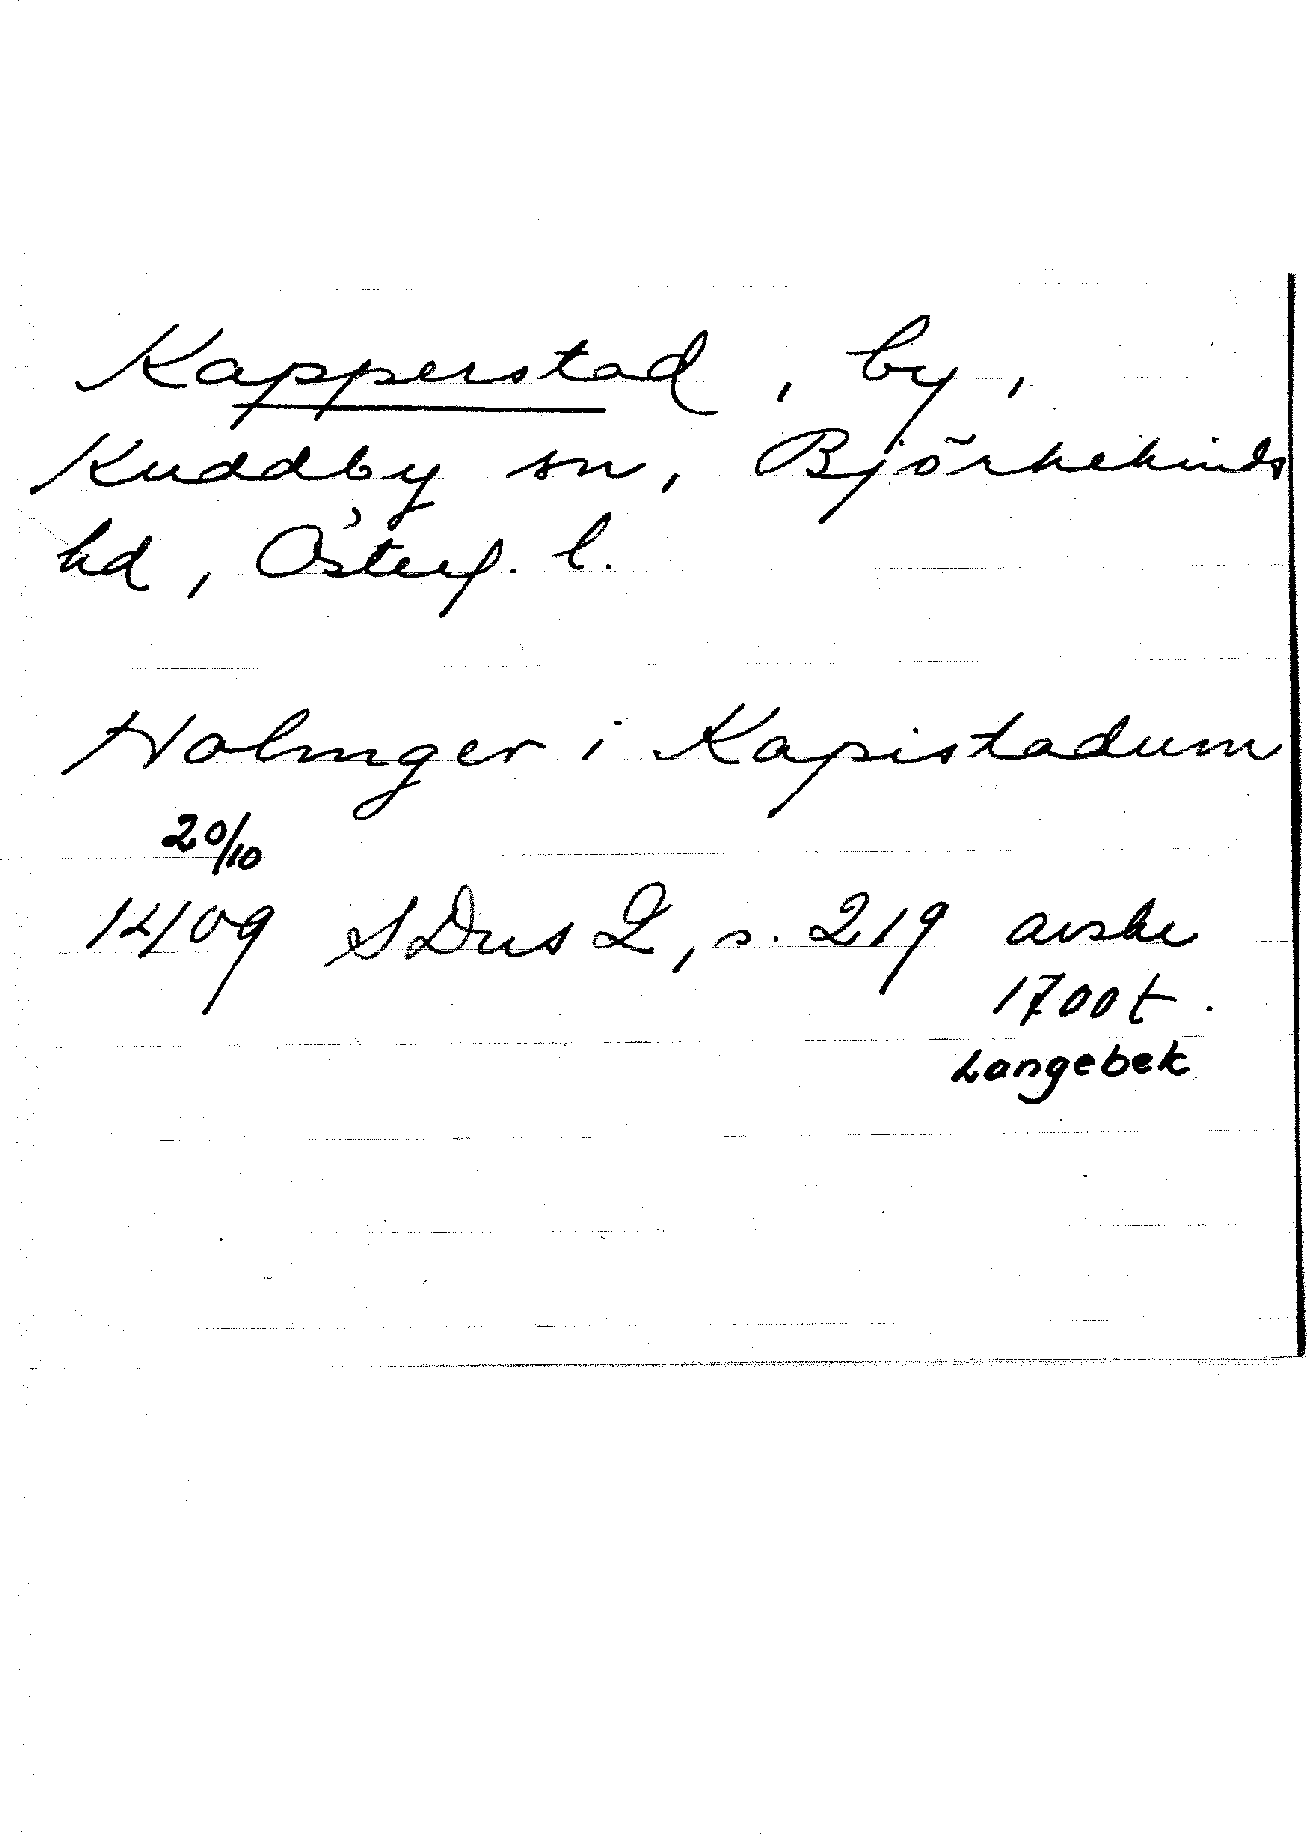 Kapperstad, by,
Kuddby sn, Björkekinds
hd, Österg. l.
Holmger i Kapistadum
20/10
1409 SDns 2, s. 219 avskr
1700 t.
Langebek